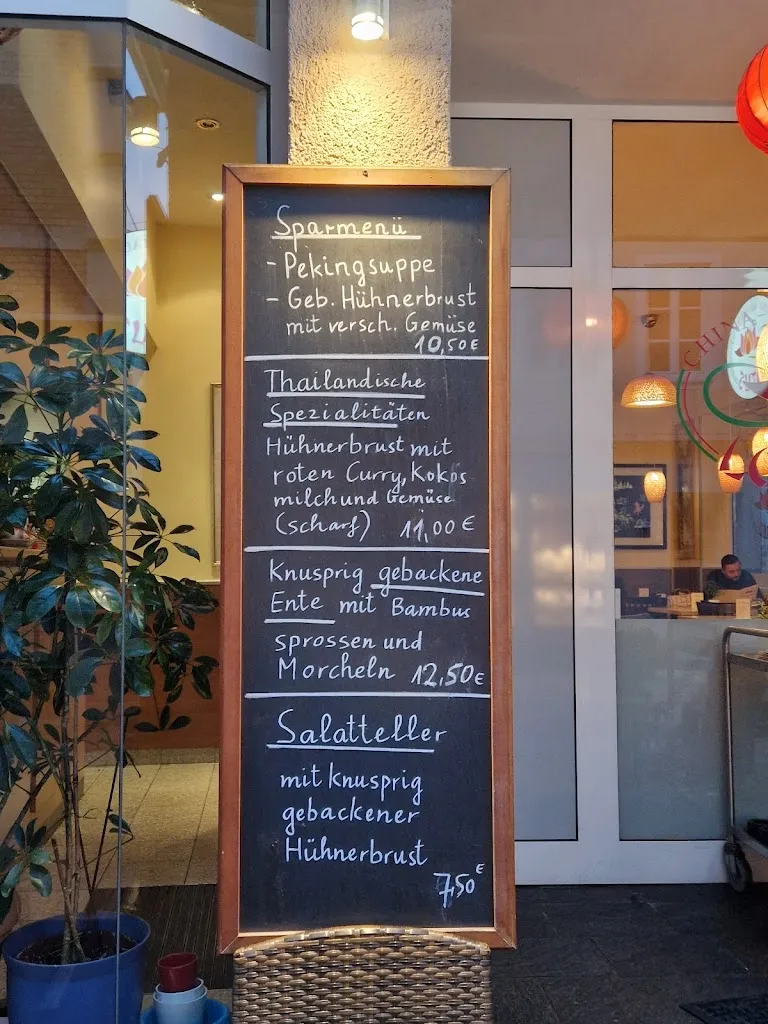 Sparmenü
- Pekingsuppe
- Geb. Hühnerbrust
mit versch. Gemüse
10,50€
Thailandische
Spezialitäten
Hühnerbrust mit
roten Curry, Kokos
milch und Gemüse
(scharf) 11,00 €
Knusprig gebackene
Ente mit Bambus
sprossen und
Morcheln 12,50€
Salatteller
mit knusprig
gebackener
Hühnerbrust
7,50€
CHINA